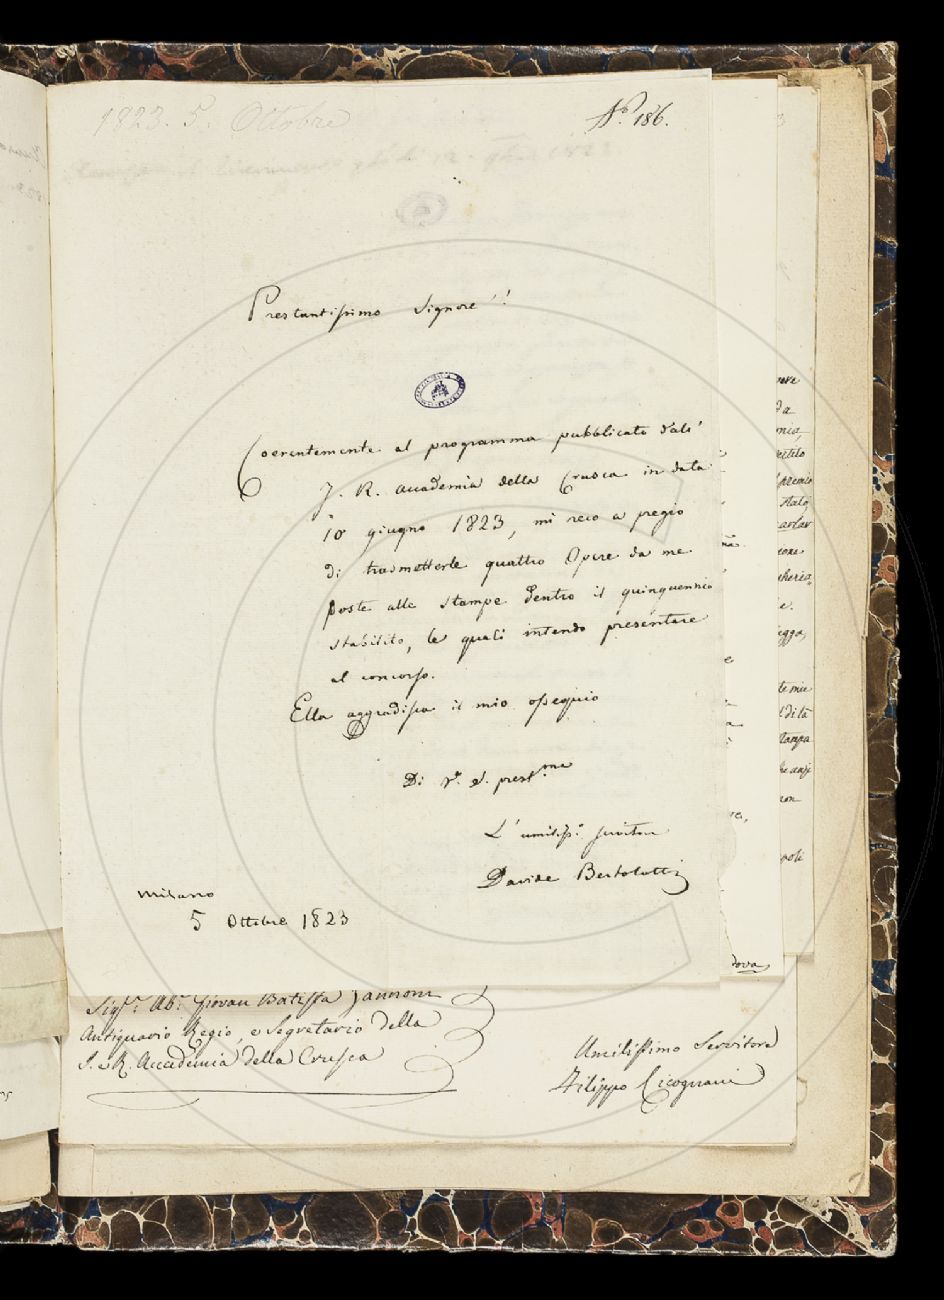 1823. 5. Ottobre
N.º 186.
Prestantissimo Signore!!
Coerentemente al programma pubblicato dall'
I. R. Accademia della Crusca in data
10 giugno 1823, mi reco a pregio
di trasmetterle quattro Opere da me
poste alle stampe dentro il quinquennio
stabilito, le quali intendo presentare
al concorso.
Ella aggradisca il mio ossequio
Di V.ª S. prest.ma
L'umiliss.º servitore
Davide Bertolotti
Milano
5 Ottobre 1823
Sig.r Ab.e Giovan Batista Zannoni
Antiquario Regio, e Segretario della
I. e R. Accademia della Crusca
Umilissimo Servitore
Filippo Cicognani